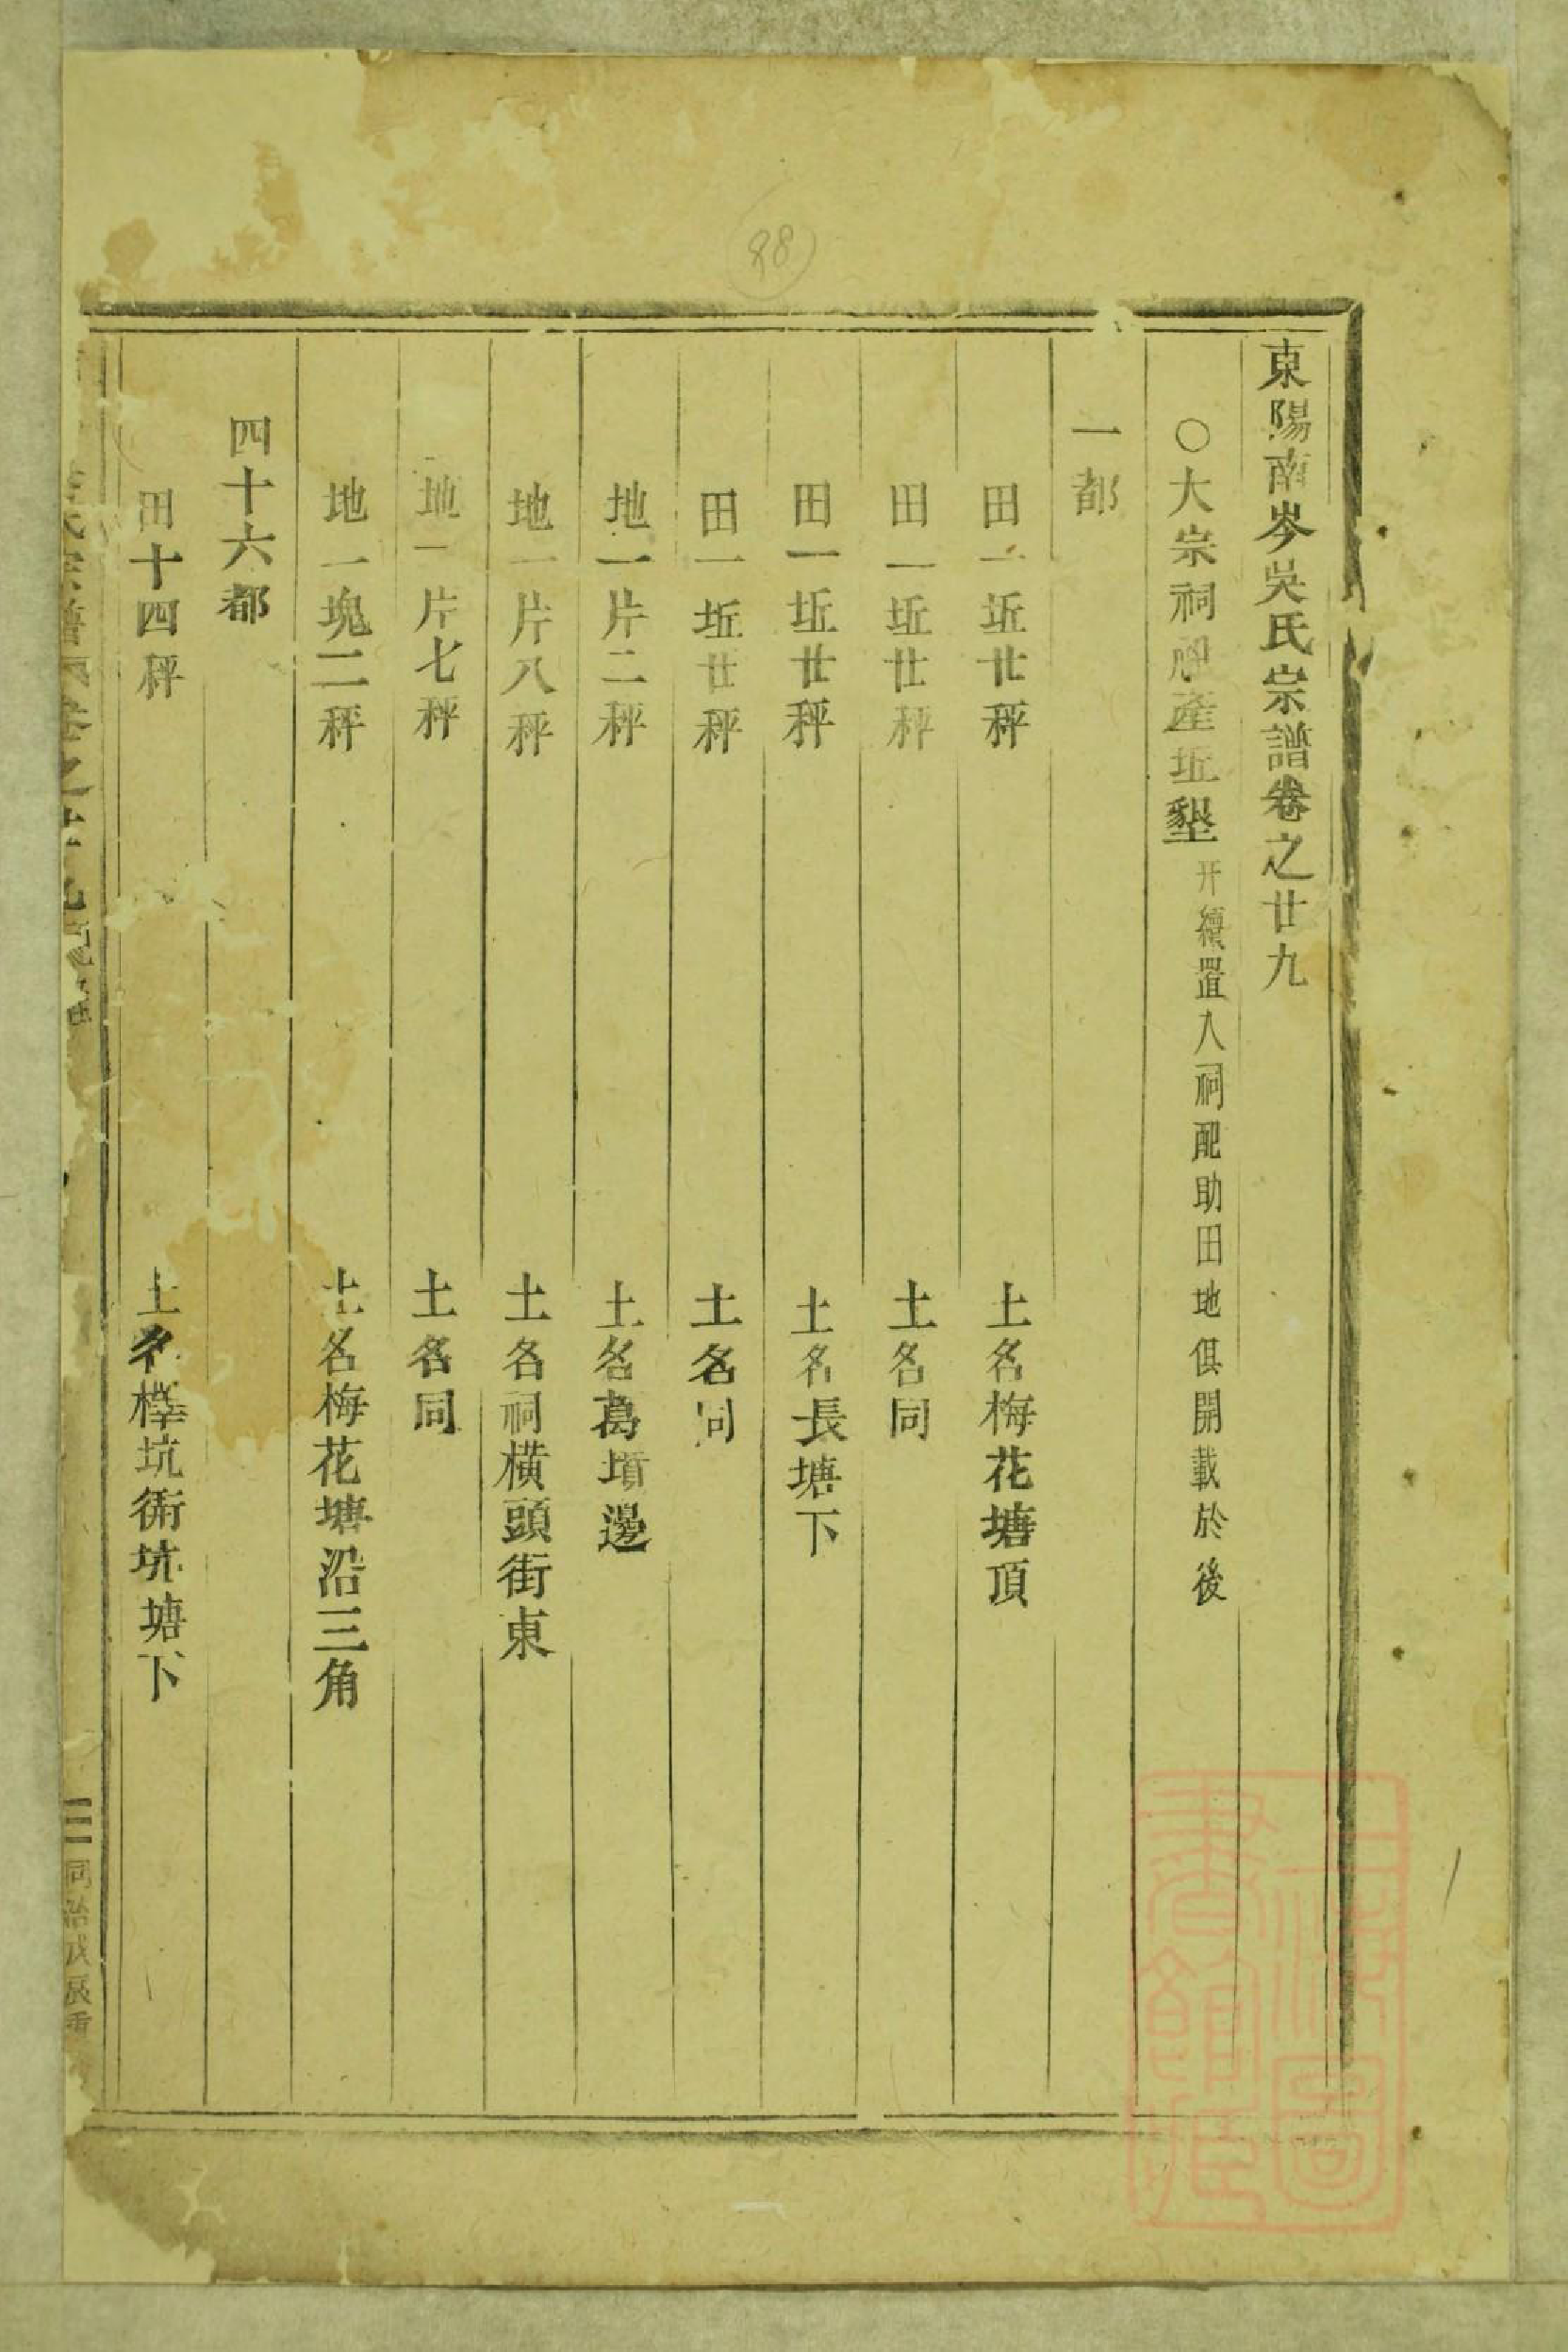 88
東陽南岑吳氏宗譜卷之廿九
○大宗祠祀產坵墾 幵續置入祠配助田地俱開載於後
一都
田一坵廿秤 土名梅花塘頂
田一坵廿秤 土名同
田一坵廿秤 土名長塘下
田一坵廿秤 土名同
地一片二秤 土名葛墳邊
地一片八秤 土名祠橫頭街東
地一片七秤 土名同
地一塊二秤 土名梅花塘沿三角
四十六都
田十四秤 土名櫸坑衕坑塘下
氏宗譜 卷之廿九
同治戊辰重
上海圖書館藏